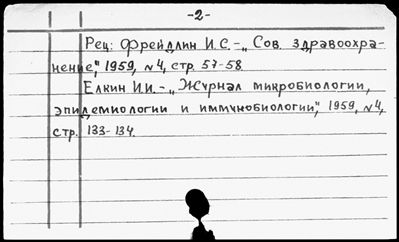 -2-
Рец: Фрейдлин И.С. – „Сов. здравоохра-
нение", 1959, №4, стр. 57-58.
Елкин И.И. – „Журнал микробиологии,
эпидемиологии и иммунобиологии", 1959, №4,
стр. 133-134.